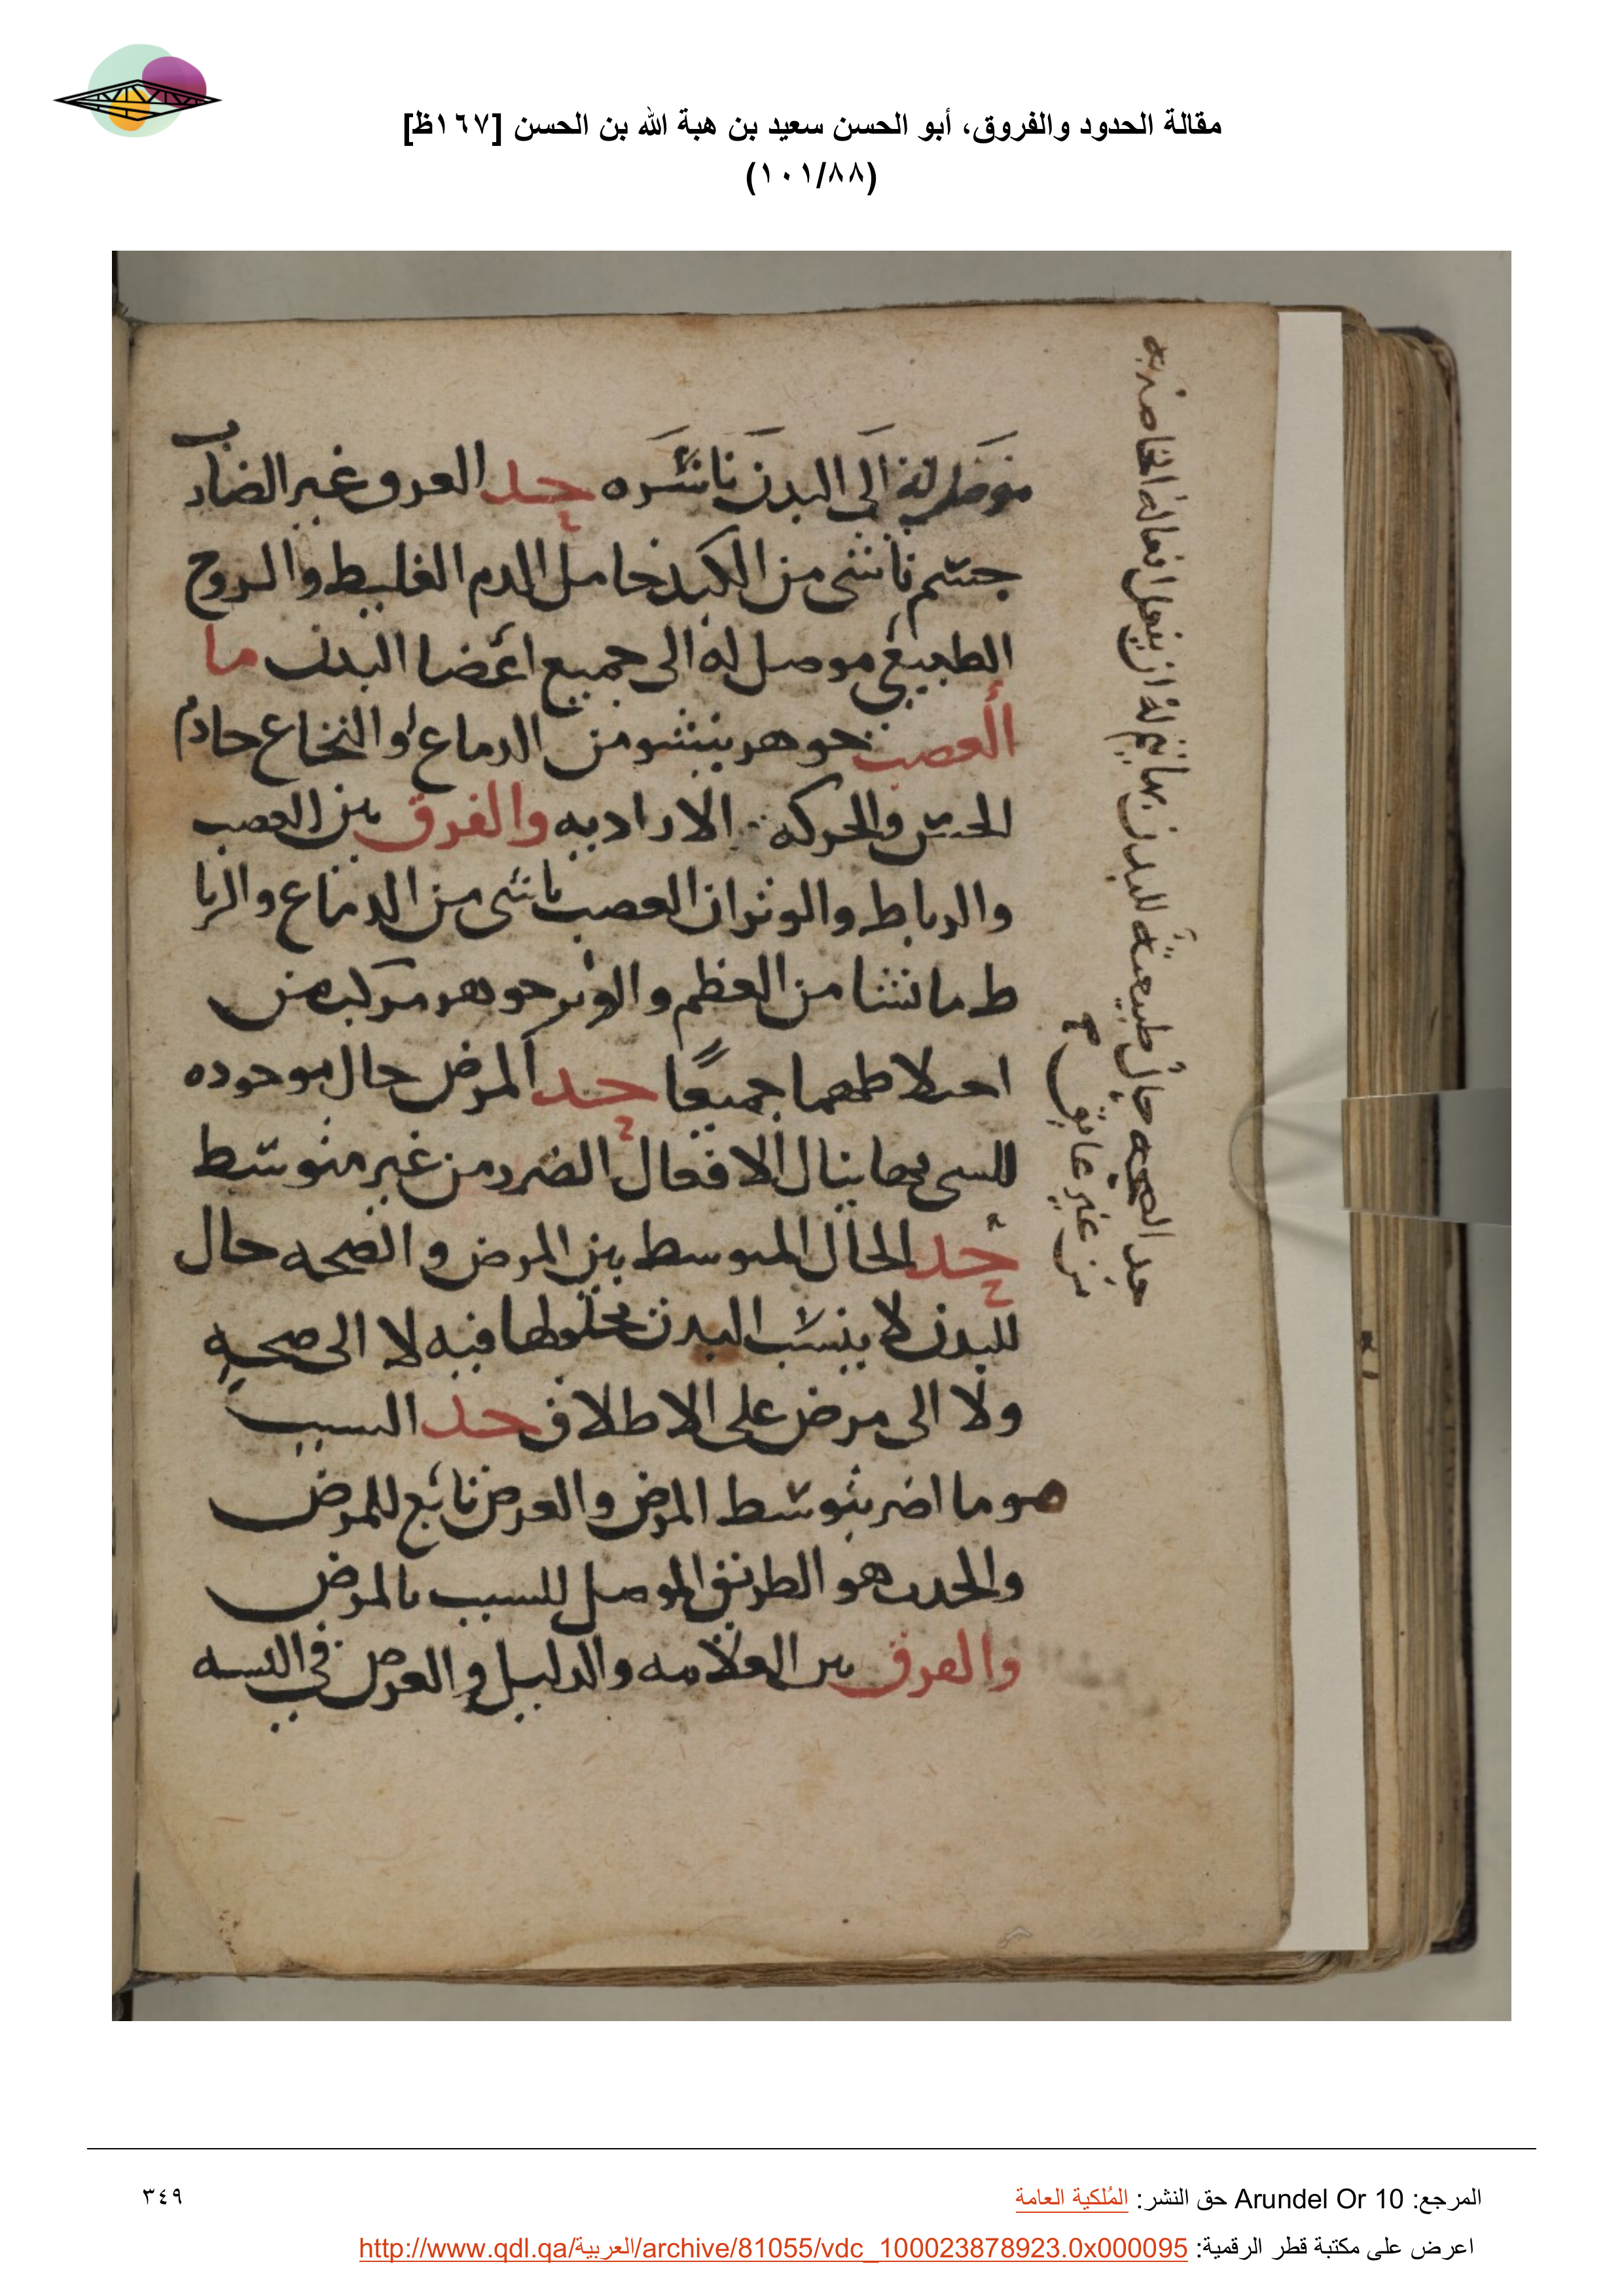 مقالة الحدود والفروق، أبو الحسن سعيد بن هبة الله بن الحسن [١٦٧ظ]
(١٠١/٨٨)
موصل له الى البدن باسره حد العروق غير الضارب
جسم ناشى من الكبد حامل للدم الغليظ والروح
الطبيعي موصل له الى جميع اعضا البدن ما
العصب جوهر ينشو من الدماغ او النخاع خادم
الحس والحركه الاراديه والفرق بين العصب
والرباط والوتر ان العصب ناشى من الدماغ والربا
ط ما نشا من العظم والوتر جوهر مركب من
اختلاطهما جميعًا حد المرض حال موجوده
للشي بها ينال الافعال الضرر من غير متوسط
حد الحال المتوسط بين المرض والصحه حال
للبدن لا ينسب البدن فيه لا الى صحه
ولا الى مرض على الاطلاق حد السبب
هو ما اضر بتوسط المرض والعرض تابع للمرض
هو الطريق الموصل للسبب بالمرض
والفرق بين العلامه والدليل والعرض في النسبه
حد الصحه حال طبيعيه للبدن بها يتم له ان يفعل افعاله الخاصه به
من غير عايق صح
المرجع: Arundel Or 10 حق النشر: المُلكية العامة
٣٤٩
اعرض على مكتبة قطر الرقمية: http://www.qdl.qa/العربية/archive/81055/vdc_100023878923.0x000095